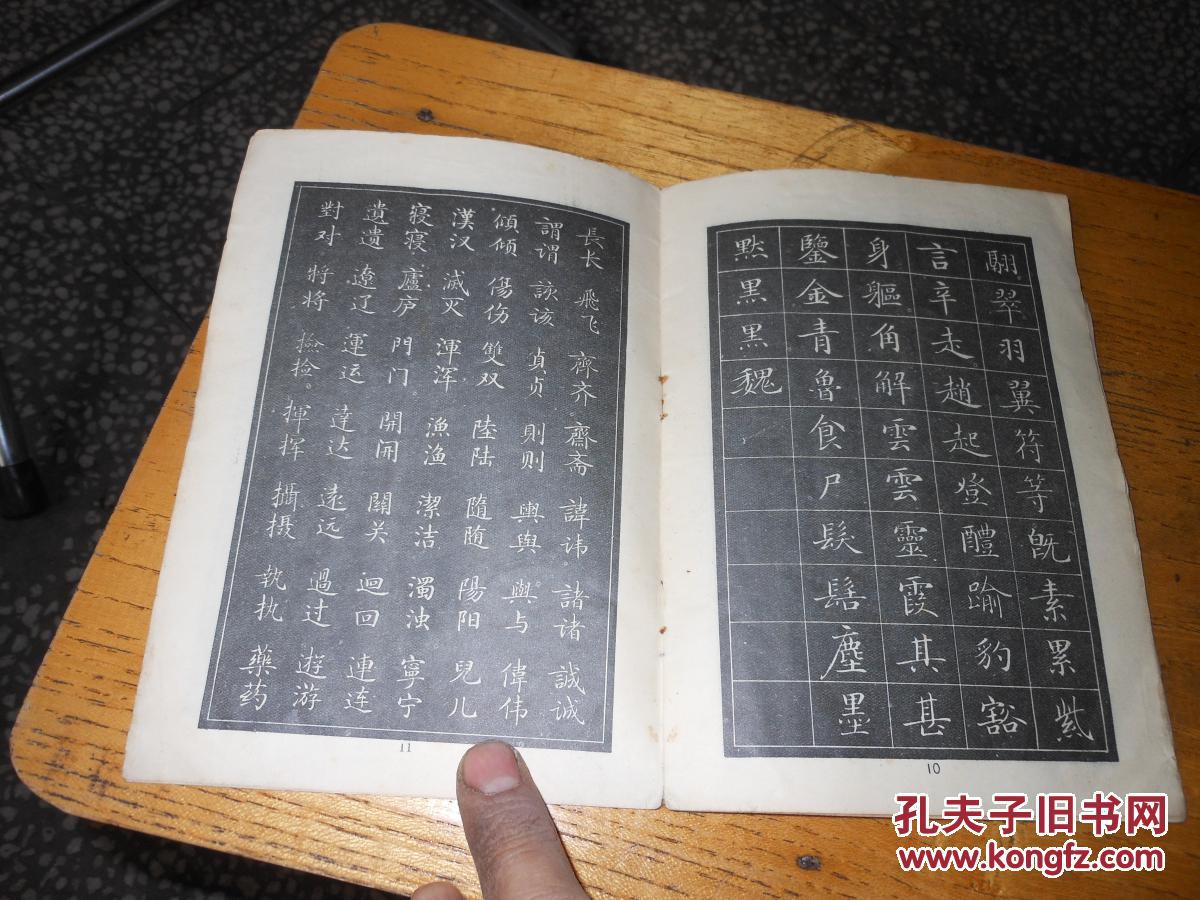 翮翠羽翼符等既素累紫
言辛走趙起燈醴踰豹豁
身軀角解雲雲靈霞其甚
鑒金青魯食尸髮髻塵墨
默黑黑魏
10
長长 飛飞 齊齐。齋斋 諱讳。諸诸 誠诚
謂谓 該该 貞贞 則则 輿舆 與与 偉伟
傾倾 傷伤 雙双 陸陆 隨随 陽阳 兒儿
漢汉 滅灭 渾浑 漁渔 潔洁 濁浊 寧宁
寢寝。廬庐 門门 開开 關关 迴回 連连
遺遗 遼辽 運运 達达 遠远 過过 遊游
對对 將将 撿捡。揮挥 攝摄 執执 藥药
11
孔夫子旧书网
www.kongfz.com